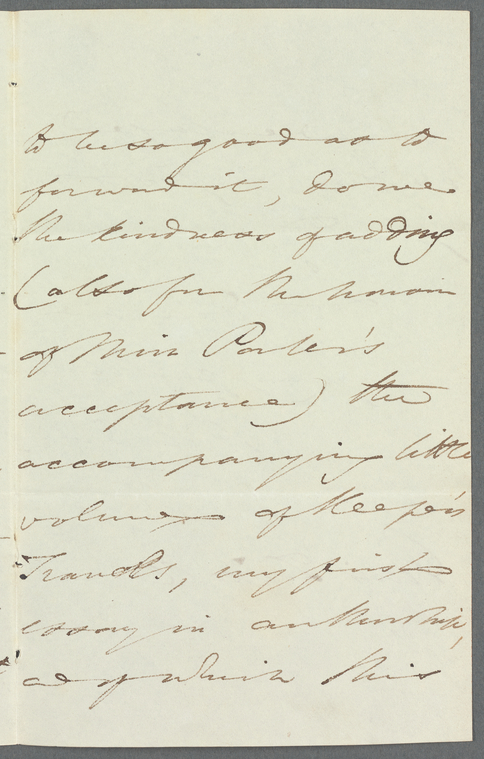 to be so good as to
forward it, do me
the kindness of adding
(also for the honor
of Miss Porter's
acceptance) the
accompanying little
volume of Keeper's
Travels, my first
essay in authorship,
as of which this